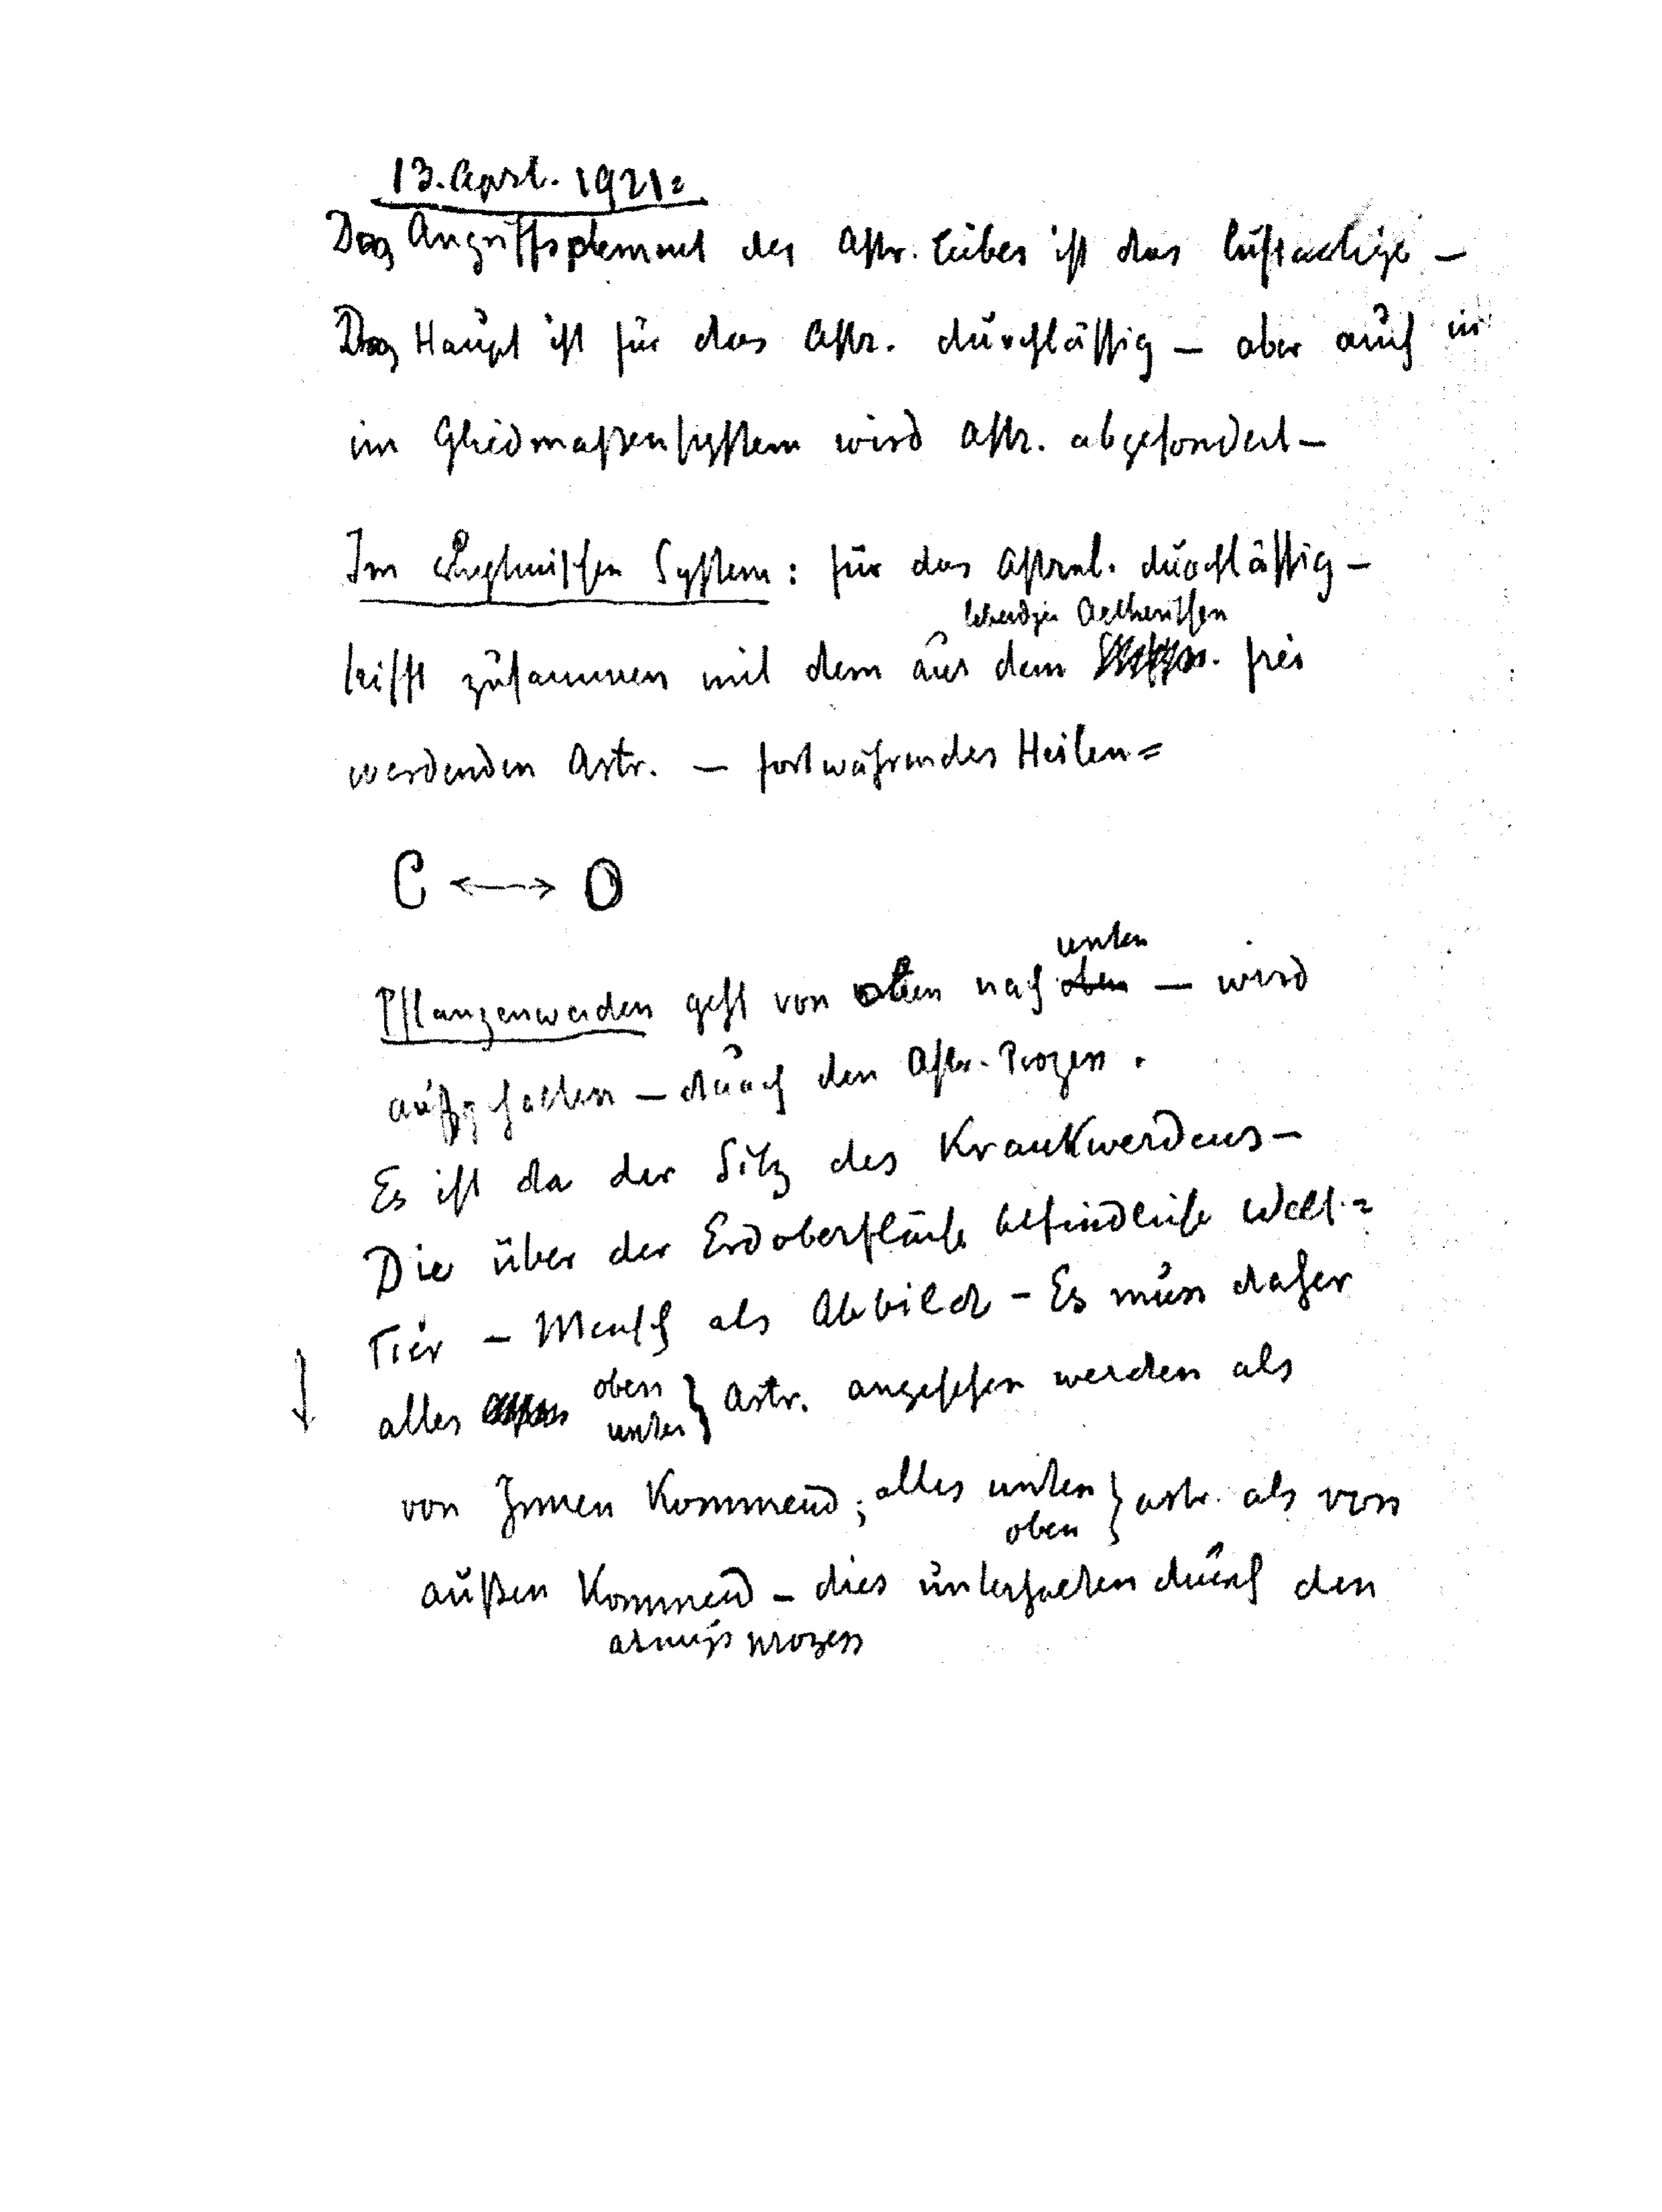 13. April. 1921:
Das Angriffselement des Astr. Leibes ist das luftartige –
Das Haupt ist für das Astr. durchlässig – aber auch in
im Gliedmaßensystem wird Astr. abgesondert –
Im rhythmischen System: für das Astral. durchlässig –
lebendigen Aetherischen
trifft zusammen mit dem aus dem frei
werdenden Astr. – fortwährendes Heilen =
C ⟷ O
unten
Pflanzenwerden geht von oben nach oben – wird
aufgehalten – durch den Astr.-Prozess.
Es ist da der Sitz des Krankwerdens –
Die über der Erdoberfläche befindliche Welt =
Tier – Mensch als Abbild – Es muss daher
↓ alles oben unten } Astr. angesehen werden als
von Innen kommend; alles unten oben } astr. als von
außen kommend – dies unterhalten durch den
atmungsprozess